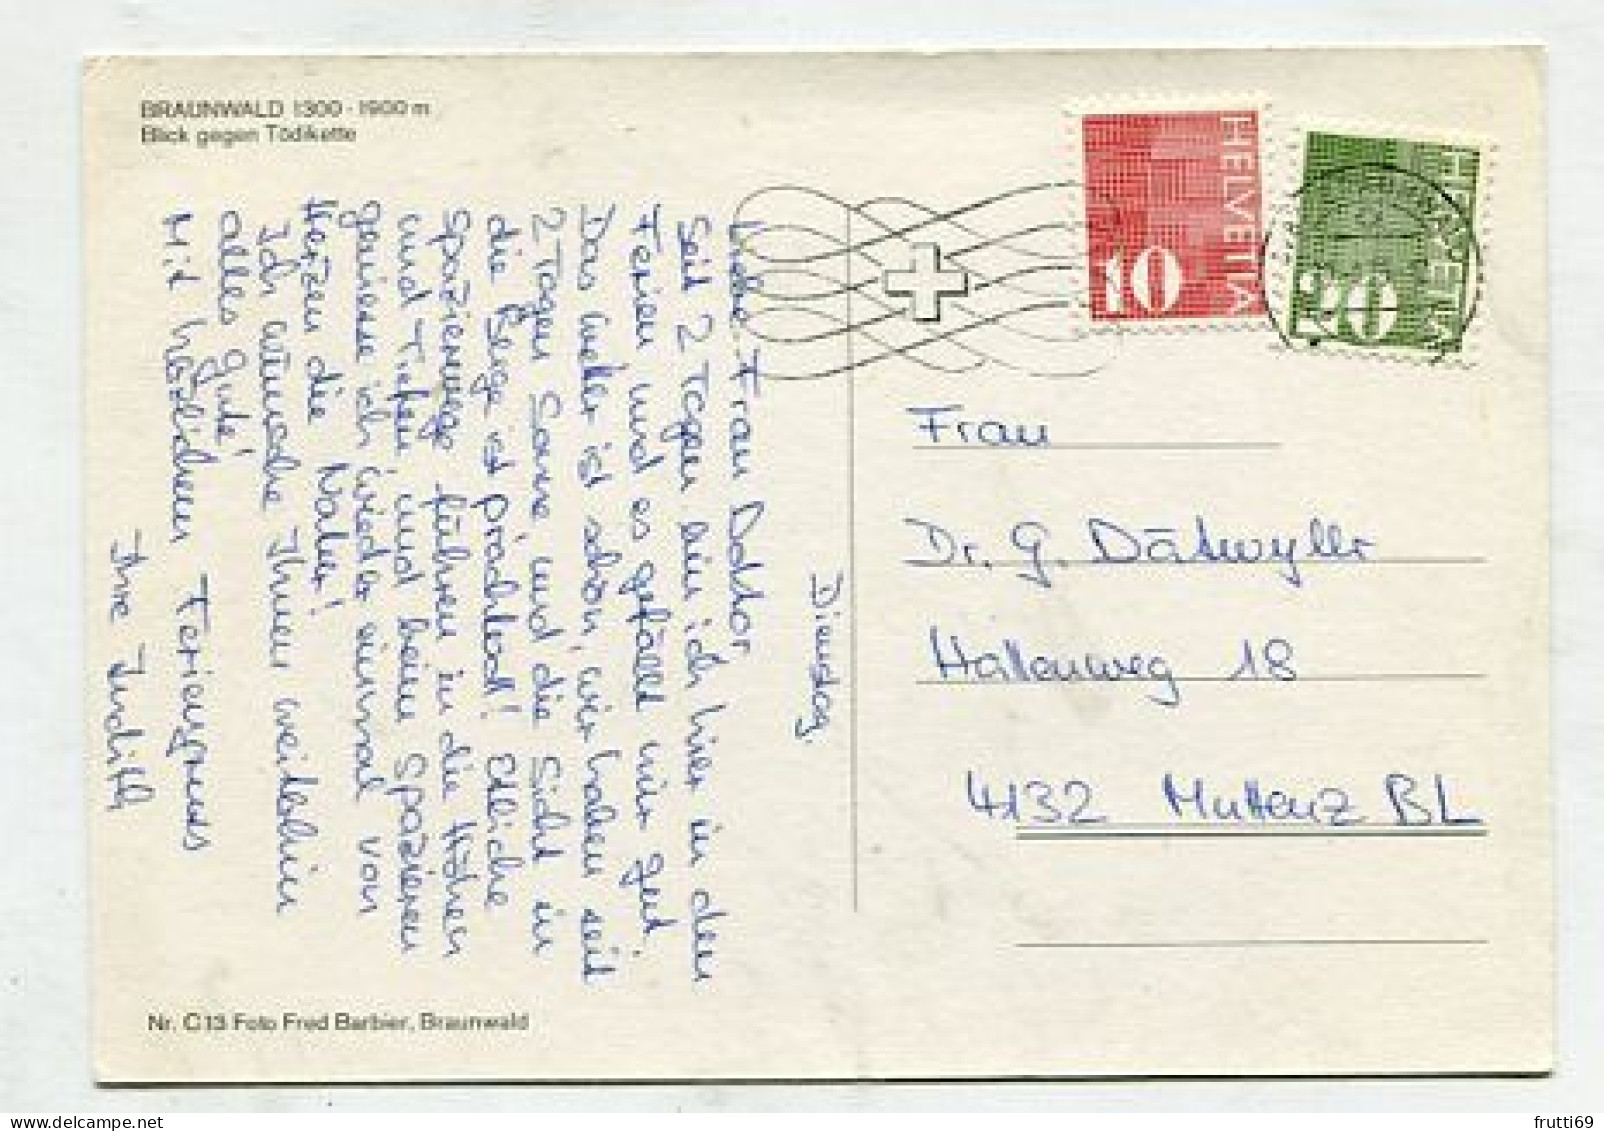 BRAUNWALD 1300 - 1900 m
Blick gegen Tödikette
HELVETIA
10
HELVETIA
20
Dienstag.
Liebe Frau Doktor
Seit 2 Tagen bin ich hier in den
Ferien und es gefällt mir gut.
Das Wetter ist schön, wir haben seit
2 Tagen Sonne und die Sicht in
die Berge ist prachtvoll! Etliche
Spazierwege führen in die Höhen
und Tiefen, und beim Spazieren
geniesse ich wieder einmal von
Herzen die Natur!
Ich wünsche Ihnen weiterhin
alles gute!
Mit herzlichem Feriengruss
Ihre Judith
Frau
Dr. G. Dätwyler
Hallenweg 18
4132 Muttenz BL
Nr. C13 Foto Fred Barbier, Braunwald
frutti69